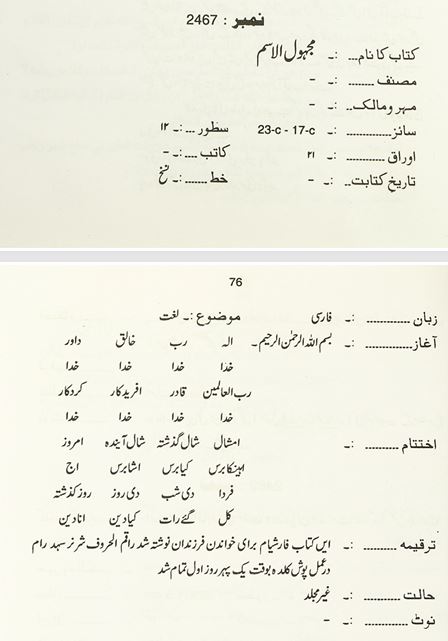 نمبر : 2467
کتاب کا نام... :۔ مجہول الاسم
مصنف ........ :۔ -
مہر ومالک.. :۔ -
سائز............. :۔ 23-c - 17-c سطور ... :۔ ۱۲
اوراق ............ :۔ ۲۱ کاتب .... :۔ -
تاریخ کتابت.. :۔ - خط ....... :۔ نسخ
76
زبان ............. :۔ فارسی موضوع :۔ لغت
آغاز............. :۔ بسم اللہ الرحمٰن الرحیم۔ الہ رب خالق داور
خدا خدا خدا خدا
رب العالمین قادر افریدکار کردکار
خدا خدا خدا خدا
اختتام .......... :۔ امشال شال گذشتہ شال آیندہ امروز
اہینکا برس کیا برس اشا برس اج
فردا دی شب دی روز روز کذشتہ
کل گئے رات کیا دین انا دین
ترقیمہ .......... :۔ ایں کتاب فارشیام برای خواندن فرزندان نوشتہ شد راقم الحروف شر نر سہد رام
درعمل پوش کلدہ بوقت یک پہر روز اول تمام شد
حالت ........... :۔ غیر مجلد
نوٹ ............. :۔ -